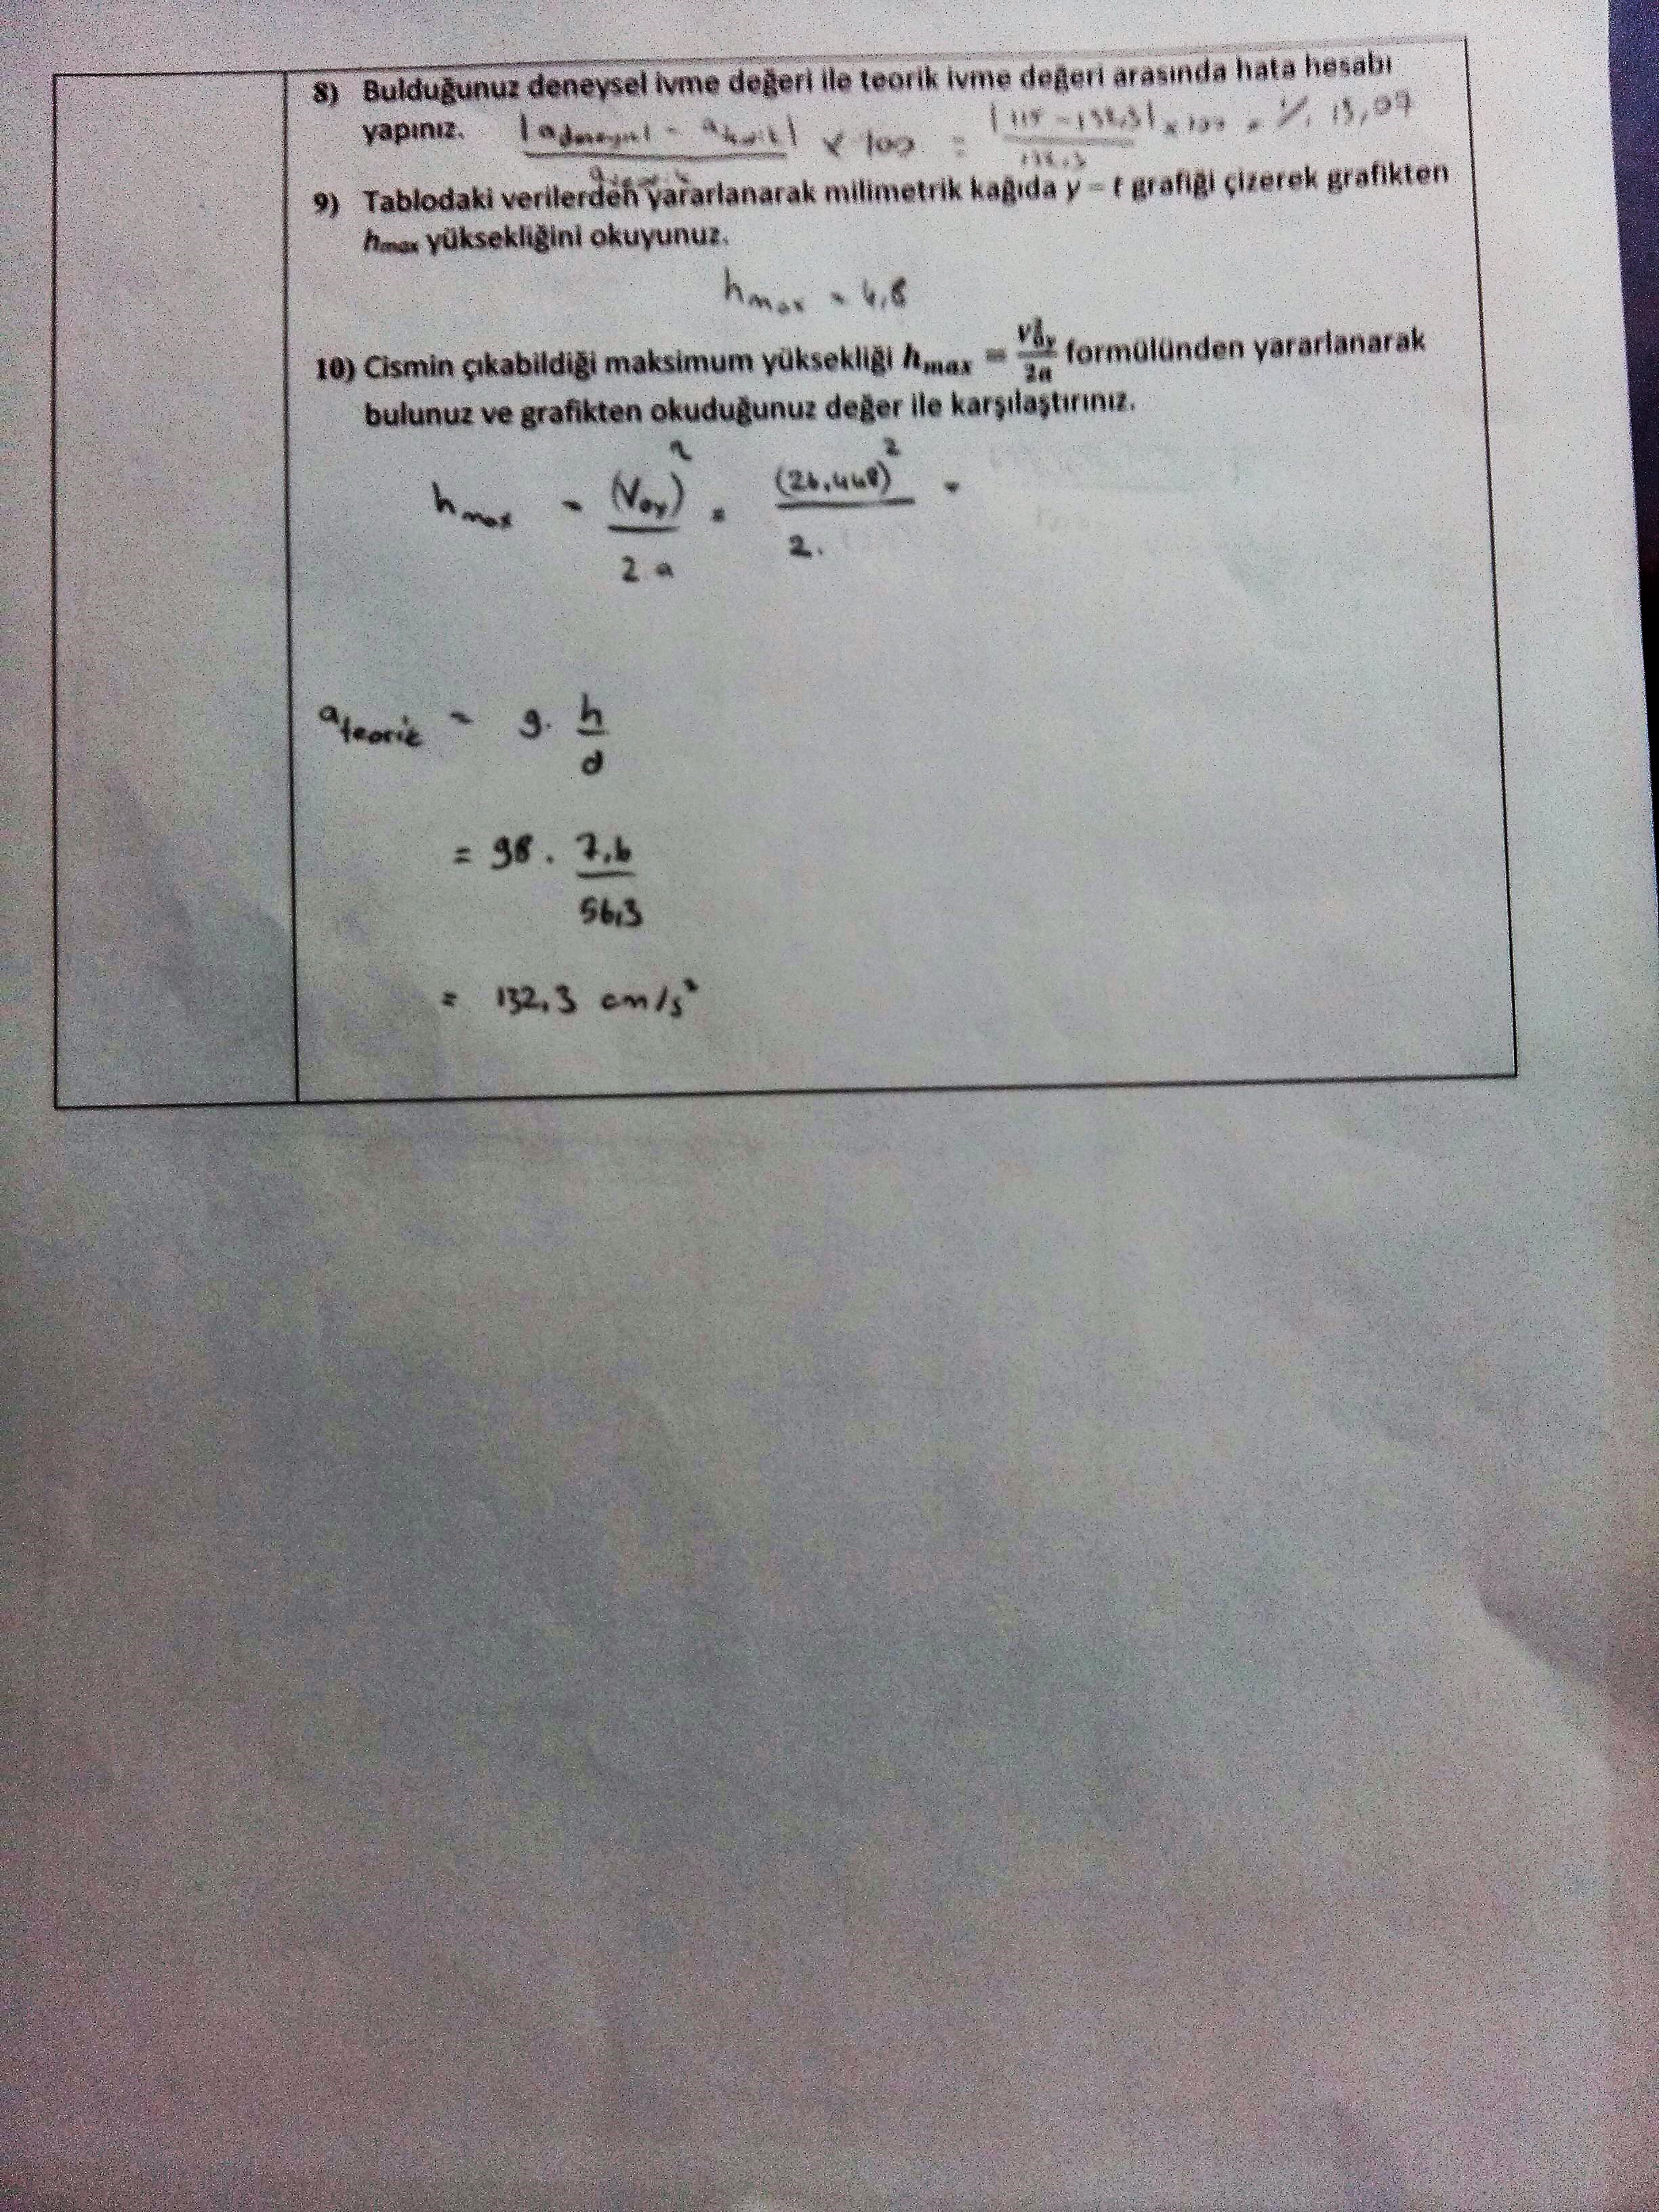 8) Bulduğunuz deneysel ivme değeri ile teorik ivme değeri arasında hata hesabı
yapınız. |a deneysel - a teorik| / a teorik x 100 = |115 - 132,3| / 132,3 x 100 = %13,07
9) Tablodaki verilerden yararlanarak milimetrik kağıda y – t grafiği çizerek grafikten
hmax yüksekliğini okuyunuz.
hmax = 4,8
10) Cismin çıkabildiği maksimum yüksekliği hmax = V²0y / 2a formülünden yararlanarak
bulunuz ve grafikten okuduğunuz değer ile karşılaştırınız.
hmax = (Voy)² / 2a = (26,448)² / 2. =
a teorik = g. h / d
= 98 . 7,6 / 56,3
= 132,3 cm/s²